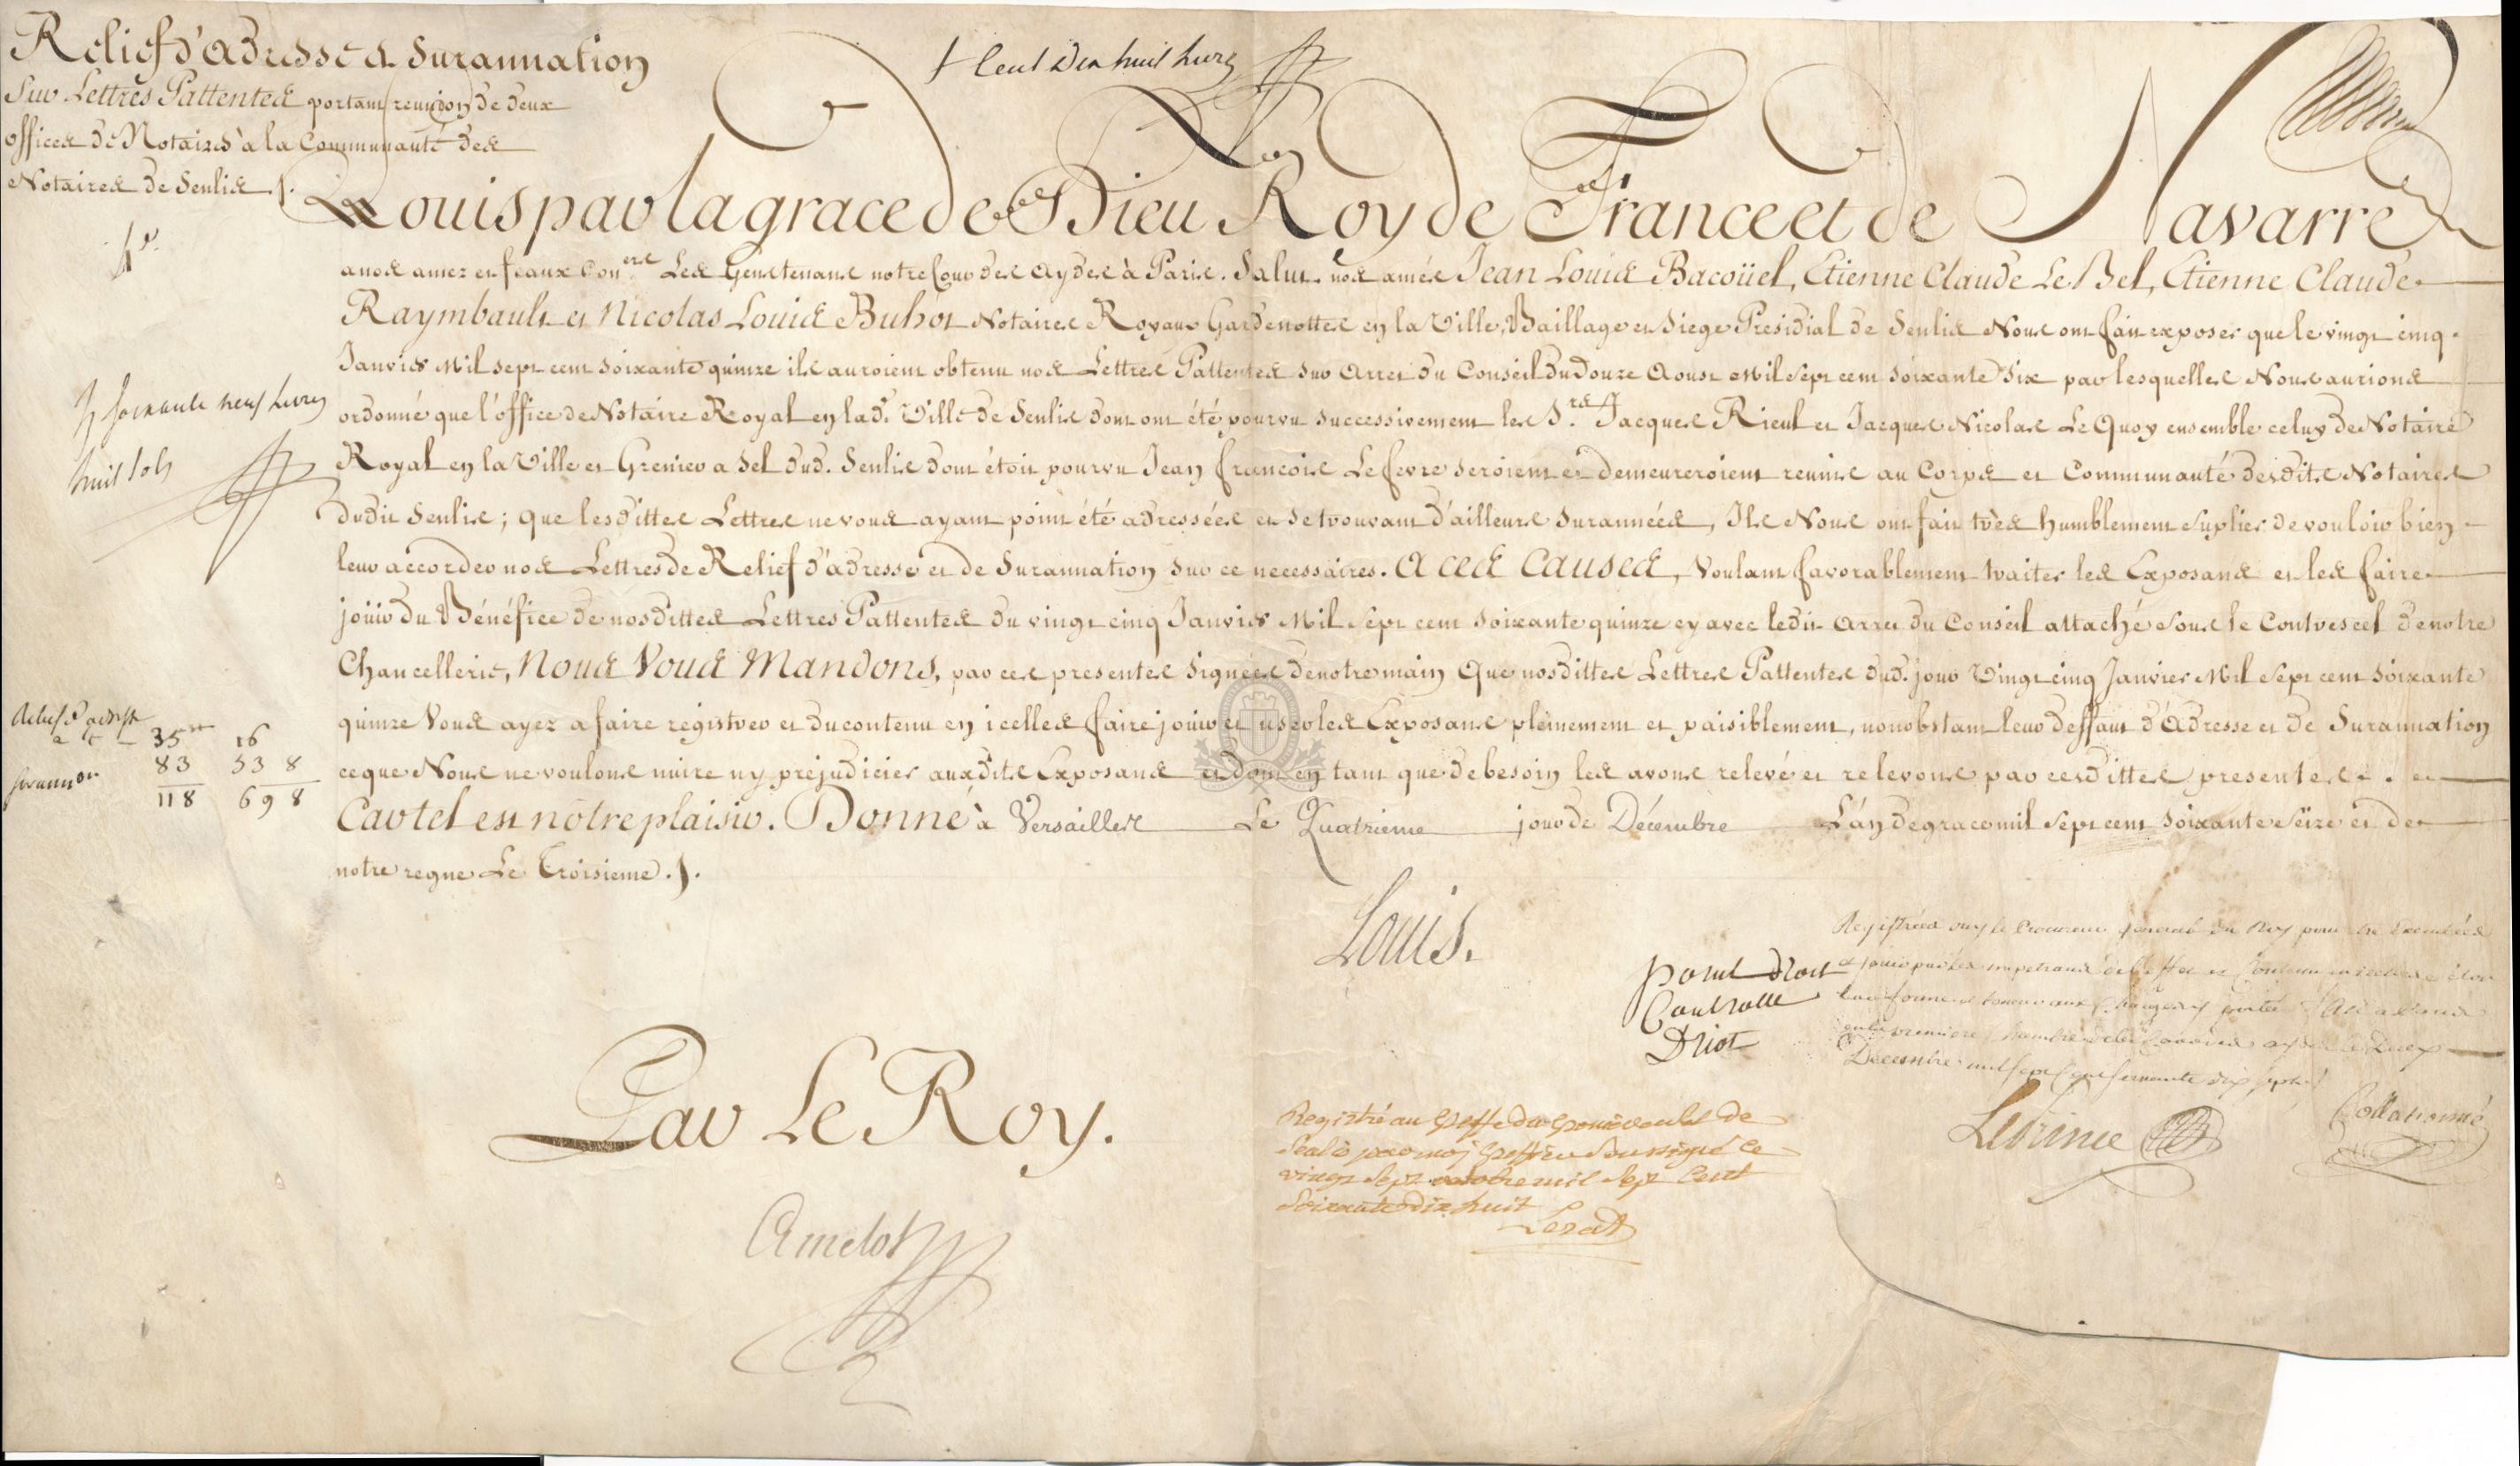 Relief d'adresse & Surannation
Sur Lettres Pattentes portant reunion de deux
offices de Notaires à la Communauté des
Notaires de Senlis ./.
+ Cent dix huit livres
Louis par la grace de Dieu Roy de France et de Navarre
a nos amez et feaux Con.ers Les Gens tenans notre Cour des Aydes à Paris. Salut. nos amés Jean Louis Bacoüel, Etienne Claude Le Bel, Etienne Claude
Raymbault et Nicolas Louis Buhot Notaires Royaux Gardenottes en la Ville, Baillage et Siege Presidial de Senlis Nous ont fait exposer que le vingt cinq
Janvier Mil sept cent soixante quinze ils auroient obtenu nos Lettres Pattentes sur Arret du Conseil du Douze Aoust Mil Sept cent soixante six par lesquelles Nous aurions
ordonné que l'office de Notaire Royal en lad. Ville de Senlis dont ont été pourvu successivement les S.rs Jacques Rieul et Jacques Nicolas Le Quoy ensemble celuy de Notaire
Royal en la Ville et Grenier a Sel dud. Senlis dont étoit pourvu Jean francois Le fevre seroient et demeureroient reunis au Corps et Communauté desdits Notaires
dudit Senlis; que lesdittes Lettres ne vous ayant point été adressées et se trouvant d'ailleurs surannées, Ils Nous ont fait très humblement suplier de vouloir bien
leur accorder nos Lettres de Relief d'adresse et de Surannation sur ce necessaires. A ces Causes, Voulant favorablement traiter les Exposans et les faire
joüir du Bénéfice de nosdittes Lettres Pattentes du vingt cinq Janvier Mil Sept cent soixante quinze cy avec ledit Arret du Conseil attaché sous le Contrescel de notre
Chancellerie, Nous Vous Mandons, par ces presentes signées de notre main Que nosdittes Lettres Pattentes dud. jour Vingt cinq Janvier Mil Sept cent soixante
quinze Vous ayez a faire régistrer et du contenu en icelles faire joüir et user les Exposans pleinement et paisiblement, nonobstant leur deffaut d'Adresse et de Surannation
ce que Nous ne voulons nuire ny prejudicier auxdits Exposans et dont en tant que de besoin les avons relevé et relevons par cesdittes presentes.
Car tel est nôtre plaisir. Donné à Versailles Le Quatrieme jour de Décembre L'an de grace mil sept cent soixante Seize et de
notre regne Le Troisieme ./.
soixante neuf Livres
huit sols
Relief d'adresse
a t 35tt 16
Surann.on 83 53 8
118 69 8
Louis.
Par Le Roy.
Amelot
point droit
Controlle
Driot
Registrées ouy le Procureur General du Roy pour être executées
et jouir par les impetrans de l'effet et Contenu en icelles
Decembre mil sept cent soixante dix sept
Leprince
Collationné
Registré au Greffe
Senlis par moy Greffier Soussigné ce
vingt Sept octobre mil Sept Cent
Soixante dix huit